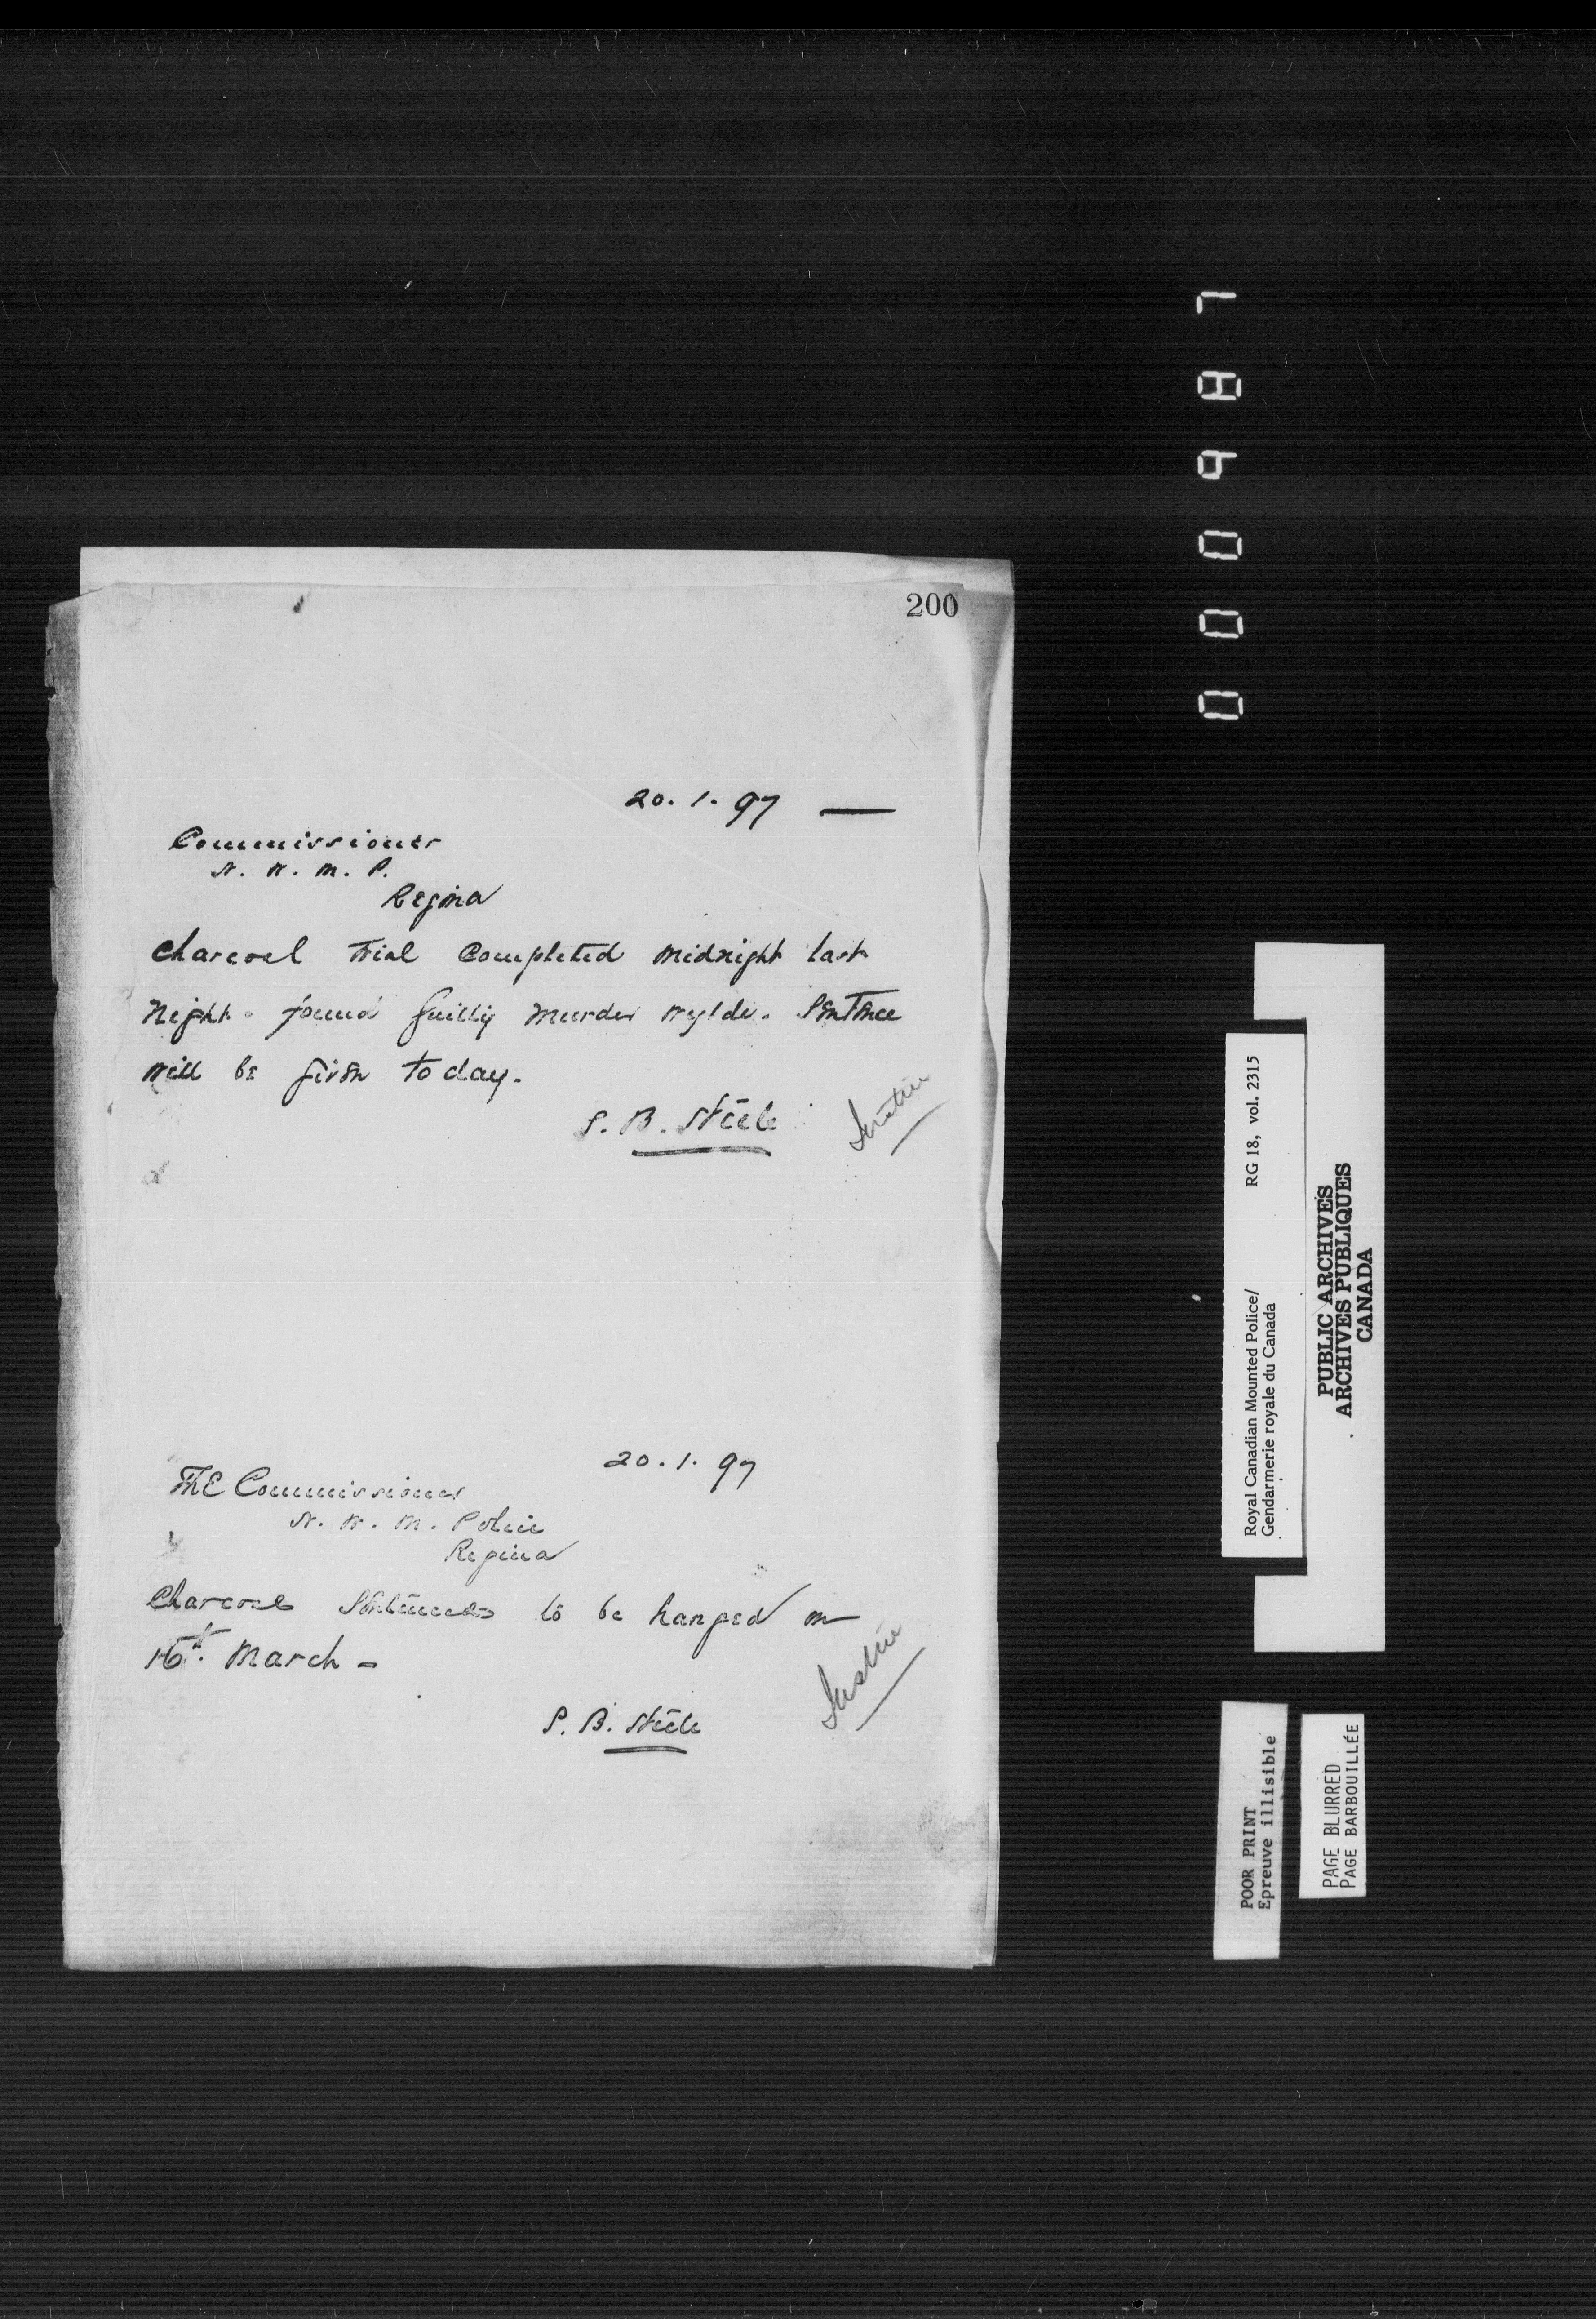 200
20. 1. 97 —
Commissioner
N. W. M. P.
Regina
Charcoal trial Completed midnight last
night. found guilty murder Wylde. Sentence
will be given to day.
S. B. Steele
20. 1. 97
The Commissioner
N. W. M. Police
Regina
Charcoal Sentenced to be hanged on
16th. March -
S. B. Steele
Royal Canadian Mounted Police/ RG 18, vol. 2315
Gendarmerie royale du Canada
PUBLIC ARCHIVES
ARCHIVES PUBLIQUES
CANADA
POOR PRINT
Epreuve illisible
PAGE BLURRED
PAGE BARBOUILLÉE